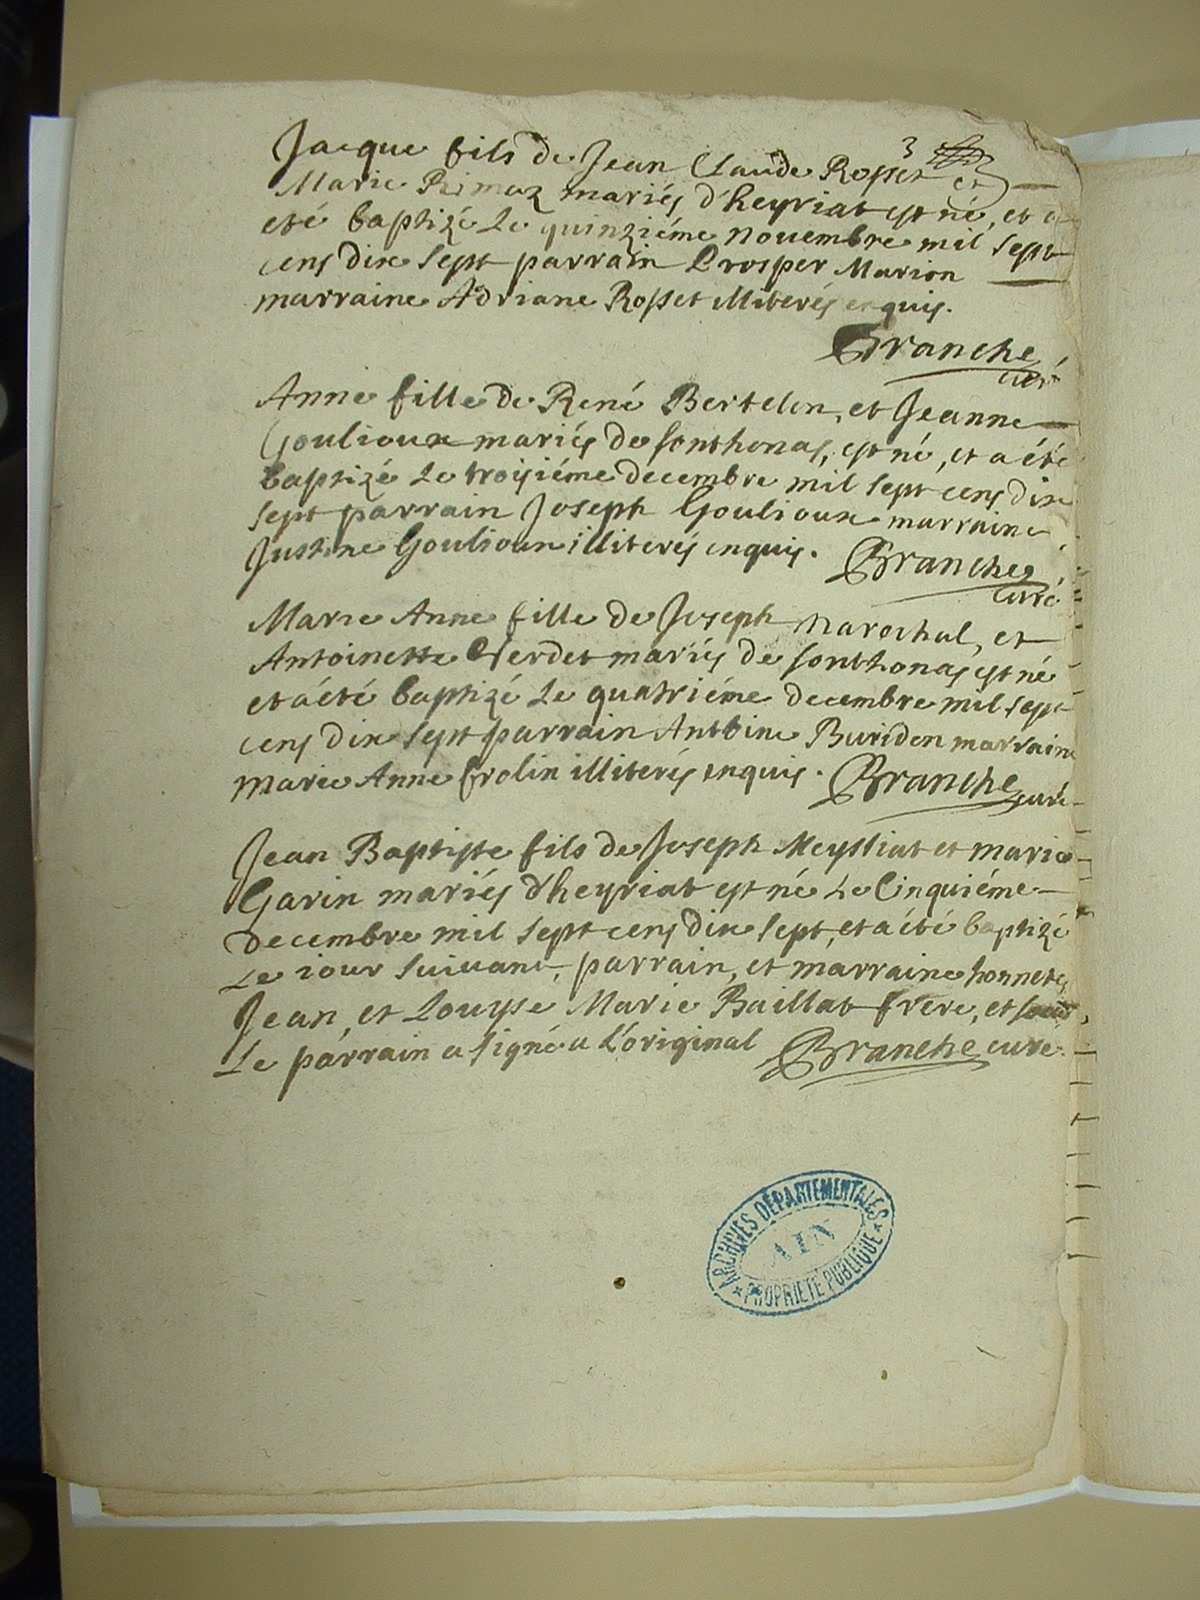 3
Jacque fils de Jean Claude Rosset et
Marie Rimoz mariés d'heyriat est né, et a
eté baptizé le quinziéme novembre mil sept
cens dix sept parrain Prosper Marion
marraine Adriane Rosset illiterés enquis.
Branche
curé
Anne fille de René Bertelon, et Jeanne
Goulioux mariés de sonthonas, est né, et a été
baptizé le troisiéme decembre mil sept cens dix
sept parrain Joseph Goulioux marraine
Justine Goulioux illiterés enquis. Branche
curé
Marie Anne fille de Joseph Marechal, et
Antoinette Verdet mariés de sonthonas est né
et a été baptizé le quatriéme decembre mil sept
cens dix sept parrain Antoine Buridon marraine
marie Anne frolin illiterés enquis. Branche
curé
Jean Baptiste fils de Joseph Meyssiat et marie
Garin mariés d'heyriat est né le Cinquiéme
decembre mil sept cens dix sept, et a été baptizé
le iour suivant, parrain, et marraine honnetes
Jean, et Louyse Marie Baillat frere, et
le parrain a signé a l'original Branche curé
ARCHIVES DÉPARTEMENTALES
AIN
PROPRIÉTÉ PUBLIQUE